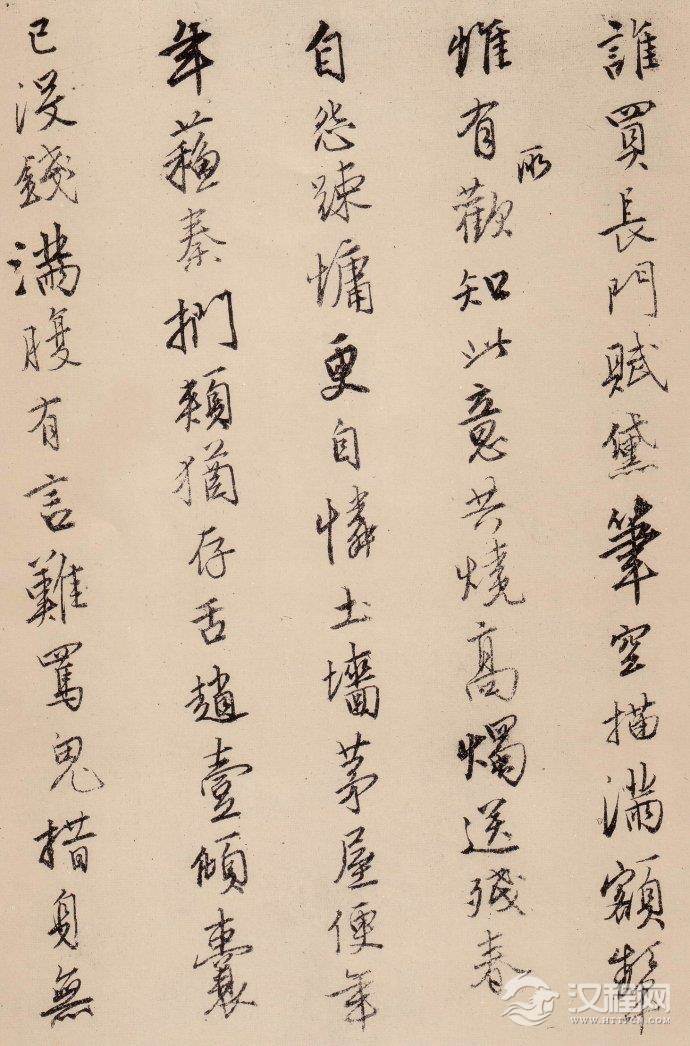 誰買長門賦黛筆空描滿額顰
惟有歡所知此意共燒高燭送殘春
自怨疎慵更自憐土墻茅屋便年
年蘓秦捫頰猶存舌趙壹傾囊
已沒錢滿腹有言難罵鬼措身無
汉程网
WWW.HTTPCN.COM